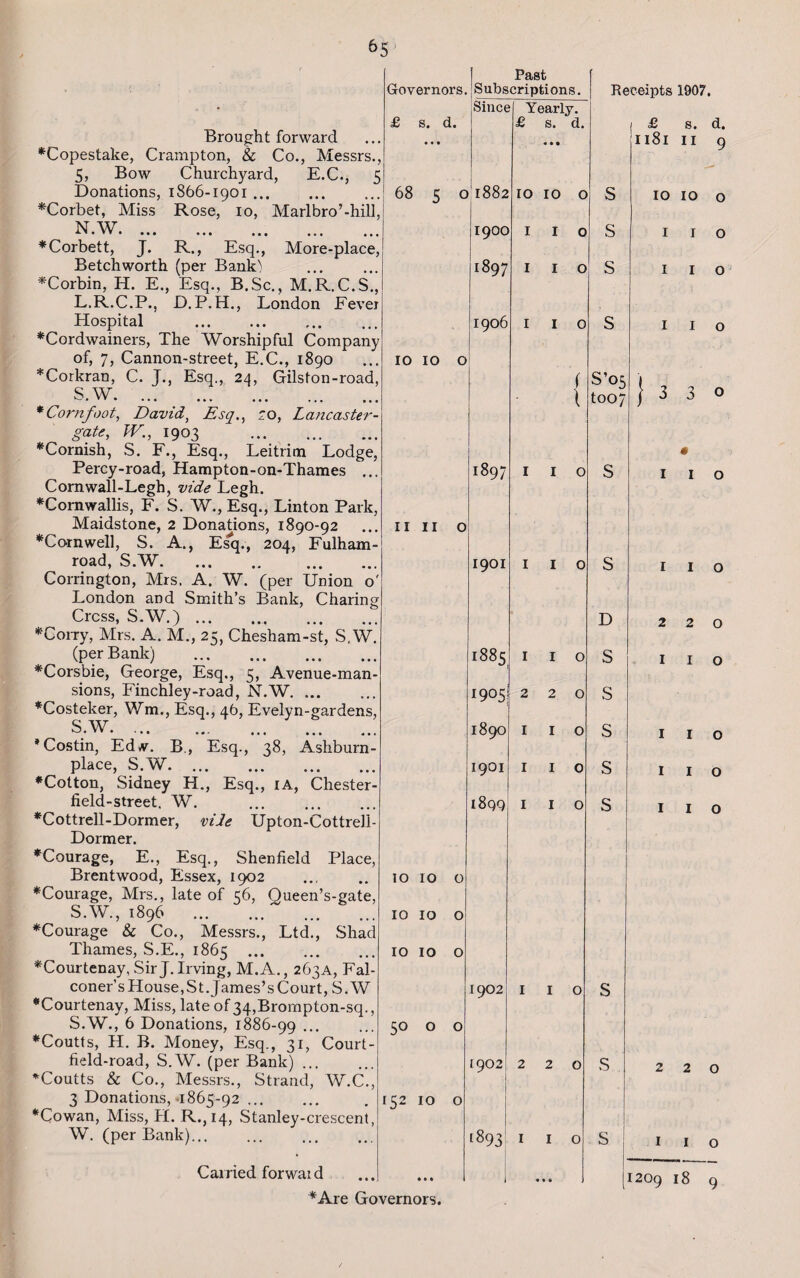 65
Governors. Past Subscriptions. Receipts 1907.
Since Yearly.
£ s. d. £ s. d. £ s. d.
Brought forward ... ... ... 1181 11 9
*Copestake, Crampton, & Co., Messrs.,
5, Bow Churchyard, E.C., 5
Donations, 1866-1901 ... ... ... 68 5 0 1882 10 10 0 S 10 10 0
*Corbet, Miss Rose, 10, Marlbro’-hill,
N.W. ... ... ... ... ... 1900 1 1 0 S 1 1 0
*Corbett, J. R., Esq., More-place,
Betchworth (per Bank) ... ... 1897 1 1 0 S 1 1 0
*Corbin, H. E., Esq., B.Sc., M.R.C.S.,
L.R.C.P., D.P.H., London Fever
Hospital ... ... ... ... 1906 1 1 0 S 1 1 0
*Cordwainers, The Worshipful Company
of, 7, Cannon-street, E.C., 1890 ... 10 10 0
*Corkran, C. J., Esq., 24, Gilston-road,
S.W. ... ... ... ... ... { S’05 to07 } 3 3 0
*Cornfoot, David, Esq., 20, Lancaster-
gate, W., 1903 ... ... ...
*Cornish, S. F., Esq., Leitrim Lodge,
Percy-road, Hampton-on-Thames ... 1897 1 1 0 S 1 1 0
Cornwall-Legh, vide Legh.
*Cornwallis, F. S. W., Esq., Linton Park,
Maidstone, 2 Donations, 1890-92 ... 11 11 0
*Cornwell, S. A., Esq., 204, Fulham-
road, S.W. ... .. ... ... 1901 1 1 0 S 1 1 0
Corrington, Mrs. A. W. (per Union o'
London and Smith’s Bank, Charing
Cross, S.W.) ... ... ... ... D 2 2 0
*Corry, Mrs. A. M., 25, Chesham-st, S.W.
(per Bank) ... ... ... ... 1885 1 1 0 S 1 1 0
*Corsbie, George, Esq., 5, Avenue-man-
sions, Finchley-road, N.W. ... ... 1905 2 2 0 S
*Costeker, Wm., Esq., 46, Evelyn-gardens,
S.W. ... ... ... ... ... 1890 1 1 0 S 1 1 0
*Costin, Edw. B., Esq., 38, Ashburn-
place, S.W. ... ... ... ... 1901 1 1 0 S 1 1 0
*Cotton, Sidney H., Esq., 1A, Chester-
field-street, W. ... ... ... 1899 1 1 0 S 1 1 0
*Cottrell-Dormer, vide Upton-Cottrell-
Dormer.
*Courage, E., Esq., Shenfield Place,
Brentwood, Essex, 1902 ... .. 10 10 0
*Courage, Mrs., late of 56, Queen’s-gate,
S.W., 1896 ... ... ... ... 10 10 0
*Courage & Co., Messrs., Ltd., Shad
Thames, S.E., 1865 ... ... ... 10 10 0
*Courtenay, Sir J. Irving, M.A., 263A, Fal-
coner’s House, St. James’s Court, S.W 1902 1 1 0 S
*Courtenay, Miss, late of 34, Brompton-sq.,
S.W., 6 Donations, 1886-99 ... ... 50 0 0
*Coutts, H. B. Money, Esq., 31, Court-
field-road, S.W. (per Bank) ... ... 1902 2 2 0 S 2 2 0
*Coutts & Co., Messrs., Strand, W.C.,
3 Donations, 1865-92 ... ... . 152 10 0
*Cowan, Miss, H. R., 14, Stanley-crescent,
W. (per Bank)... ... ... ... 1893 1 1 0 S 1 1 0
Carried forward ... ... ... 1209 18 9
*Are Governors.